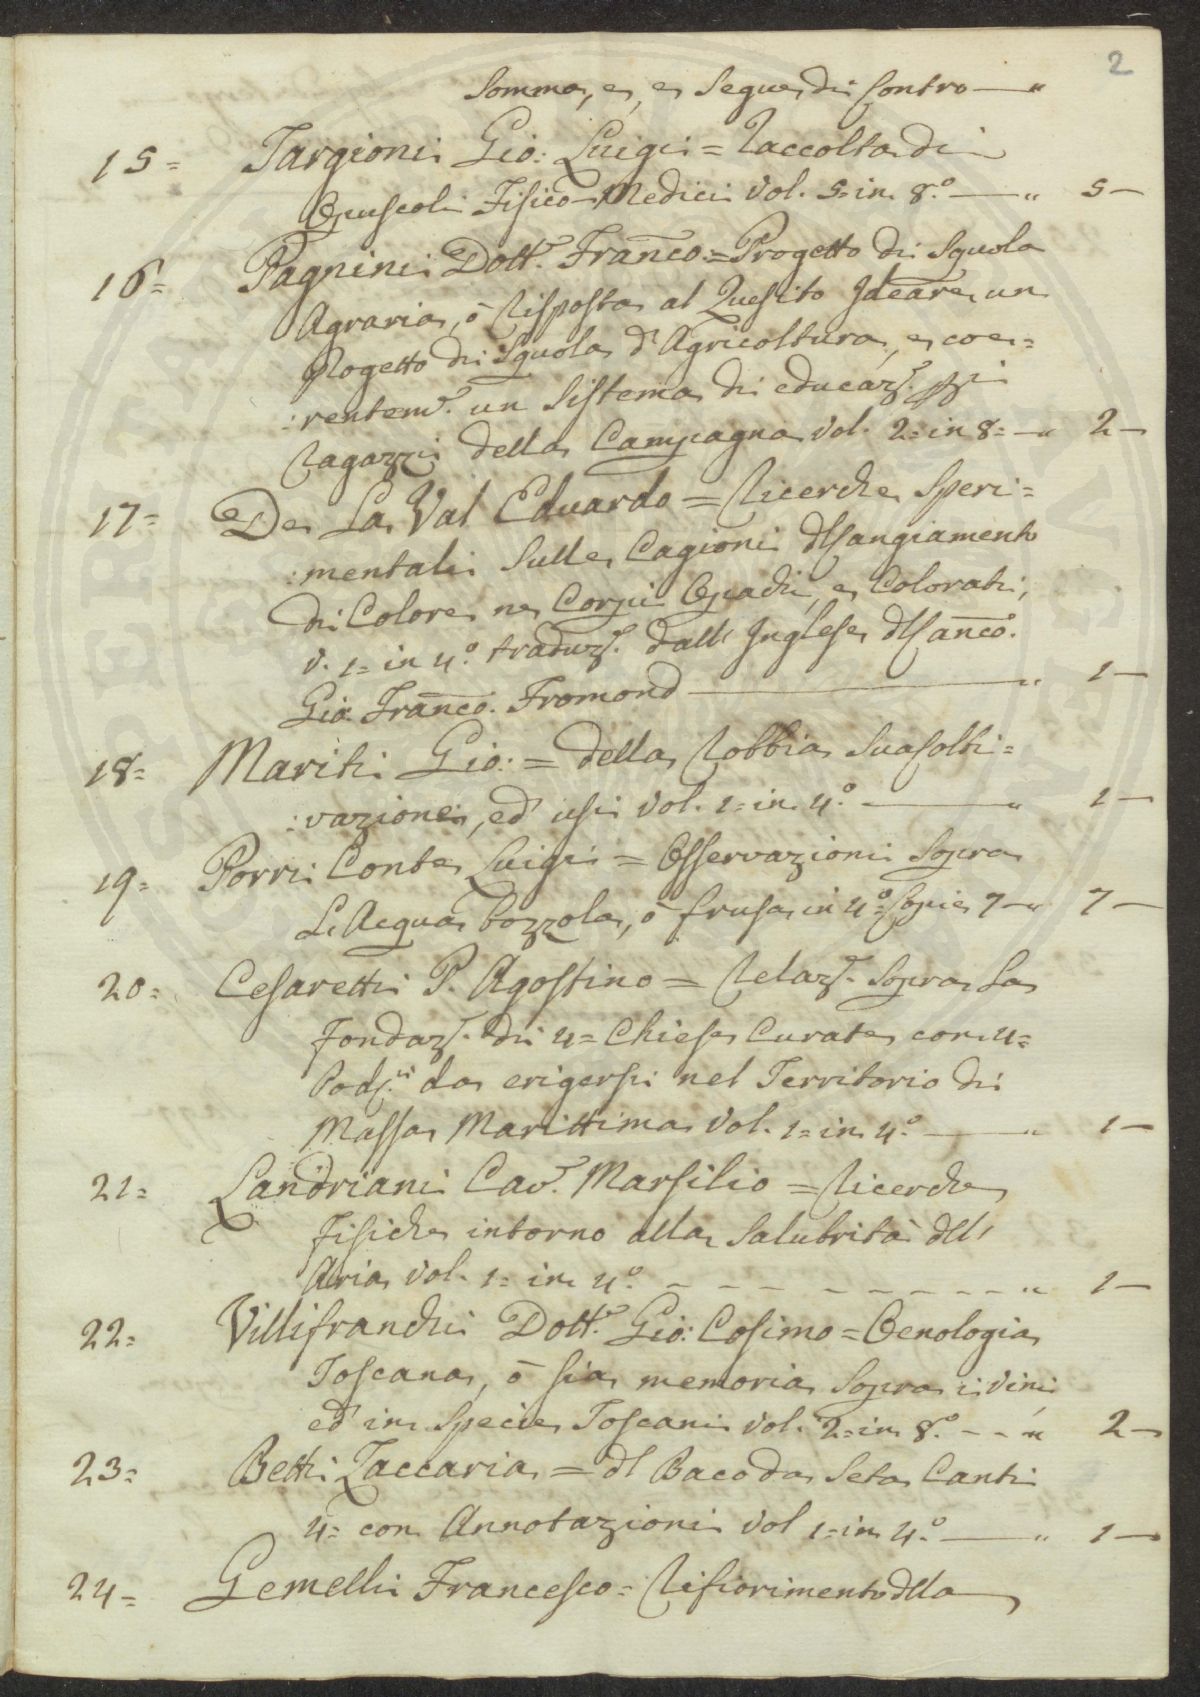 2
Somma, e, e segue di Contro — "
15= Targioni Gio: Luigi = Raccolta di
Opuscoli Fisico-Medici Vol. 5= in 8.° — " 5 —
16= Pagnini Dott.r Franco = Progetto di Squola
Agraria, ò Risposta al Quesito Ideare un
Progetto di Squola d'Agricoltura, e coe=
:rentem.e un Sistema di educaz.e pzi
Ragazzi della Campagna Vol. 2= in 8= — " 2 —
17= De La Val Eduardo = Ricerche Speri=
:mentali Sulle Cagioni dl Cangiamento
di Colore ne Corpi Opachi, e Colorati,
v. 1= in 4.° traduz.e dall' Inglese dl Canco.
Gio. Franco. Fromond — " 1 —
18= Mariti Gio: = della Robbia Sua Colti=
:vazione, ed usi Vol. 1= in 4.° — " 1 —
19= Porri Conte Luigi = Osservazioni Sopra
L'Acqua Pozzola, ò frusa in 4°= Copie 7 — " 7 —
20= Cesaretti P. Agostino = Relaz.e Sopra La
fondaz.e di 4= Chiese Curate con 4=
Pod.ri da erigersi nel Territorio di
Massa Marittima Vol. 1= in 4.° — " 1 —
21= Landriani Cav.r Marsilio = Ricerche
Fisiche intorno alla Salubrità dll'
Aria Vol. 1= in 4.° - - - - - - - - - " 1 —
22= Villifranchi Dott.r Gio: Cosimo = Oenologia
Toscana, ò sia memoria Sopra i vini
ed in Specie Toscani Vol. 2= in 8.° - - " 2 —
23= Betti Zaccaria = dl Baco da Seta Canti
4= con Annotazioni Vol 1= in 4.° — " 1 —
24= Gemelli Francesco = Rifiorimento dlla